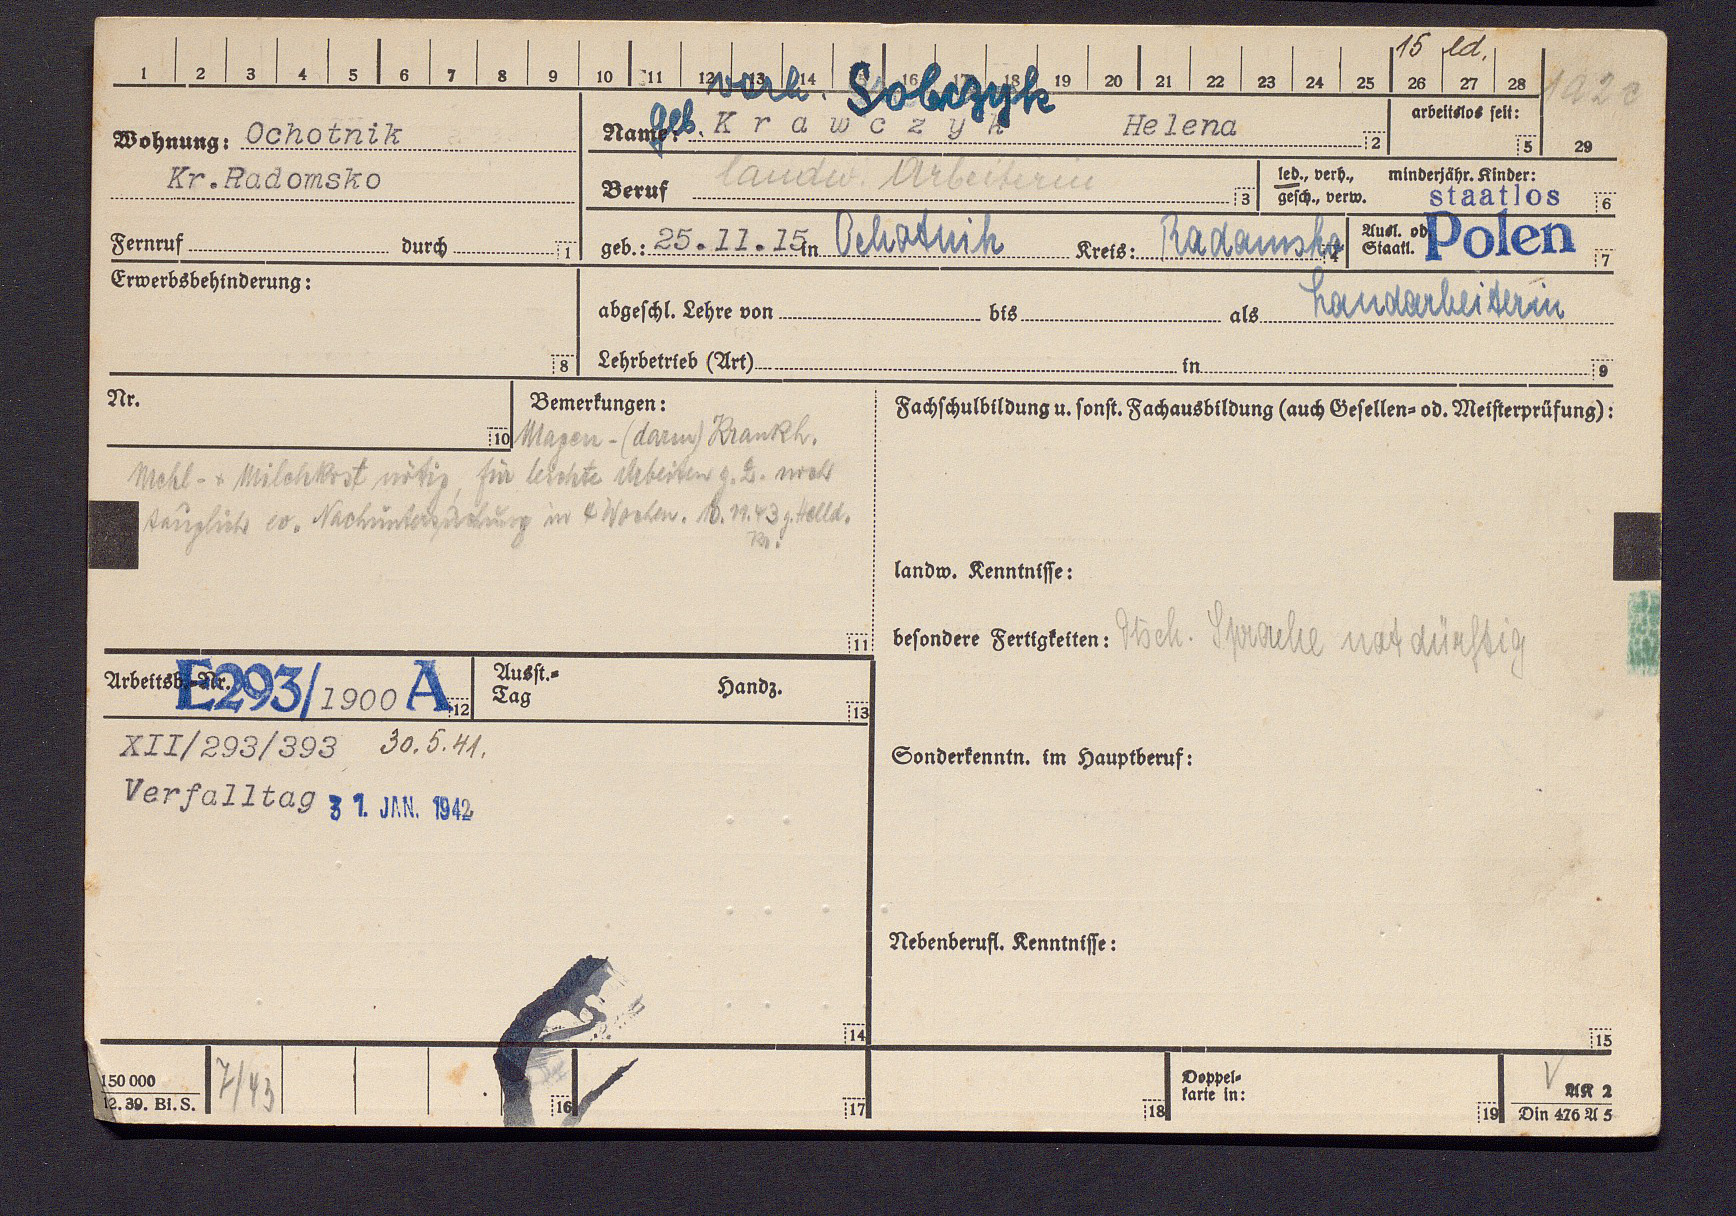 15 led.
1 2 3 4 5 6 7 8 9 10 11 12 13 14 15 16 17 18 19 20 21 22 23 24 25 26 27 28
192c
verh. Sobczyk
Wohnung: Ochotnik
geb. Name: Krawczyk Helena 2
arbeitslos seit: 5 29
Kr.Radomsko
Beruf landw. Arbeiterin 3
led., verh., gesch., verw.
minderjähr. Kinder: 6
staatlos
Fernruf durch 1
geb.: 25.11.15 in Ochotnik Kreis: Radomsko 4
Ausl. od. Staatl. Polen 7
Erwerbsbehinderung: 8
abgeschl. Lehre von bis als Landarbeiterin
Lehrbetrieb (Art) in 9
Nr. 10
Bemerkungen:
Magen-(darm) Krankh.
Mehl- + Milchkost nötig, für leichte Arbeiten z. Z. noch
tauglich ev. Nachuntersuchung in 4 Wochen.
11
Fachschulbildung u. sonst. Fachausbildung (auch Gesellen- od. Meisterprüfung):
landw. Kenntnisse:
besondere Fertigkeiten: Dtsch. Sprache notdürftig
Arbeitsb.-Nr. E293/1900 A 12
Ausst.-Tag Handz. 13
XII/293/393 30.5.41.
Verfalltag 31. JAN. 1942
14
Sonderkenntn. im Hauptberuf:
Nebenberufl. Kenntnisse:
15
150 000
12. 39. Bl. S.
7/43
16 17 18
Doppel-
karte in: 19
V
AK 2
Din 476 A 5